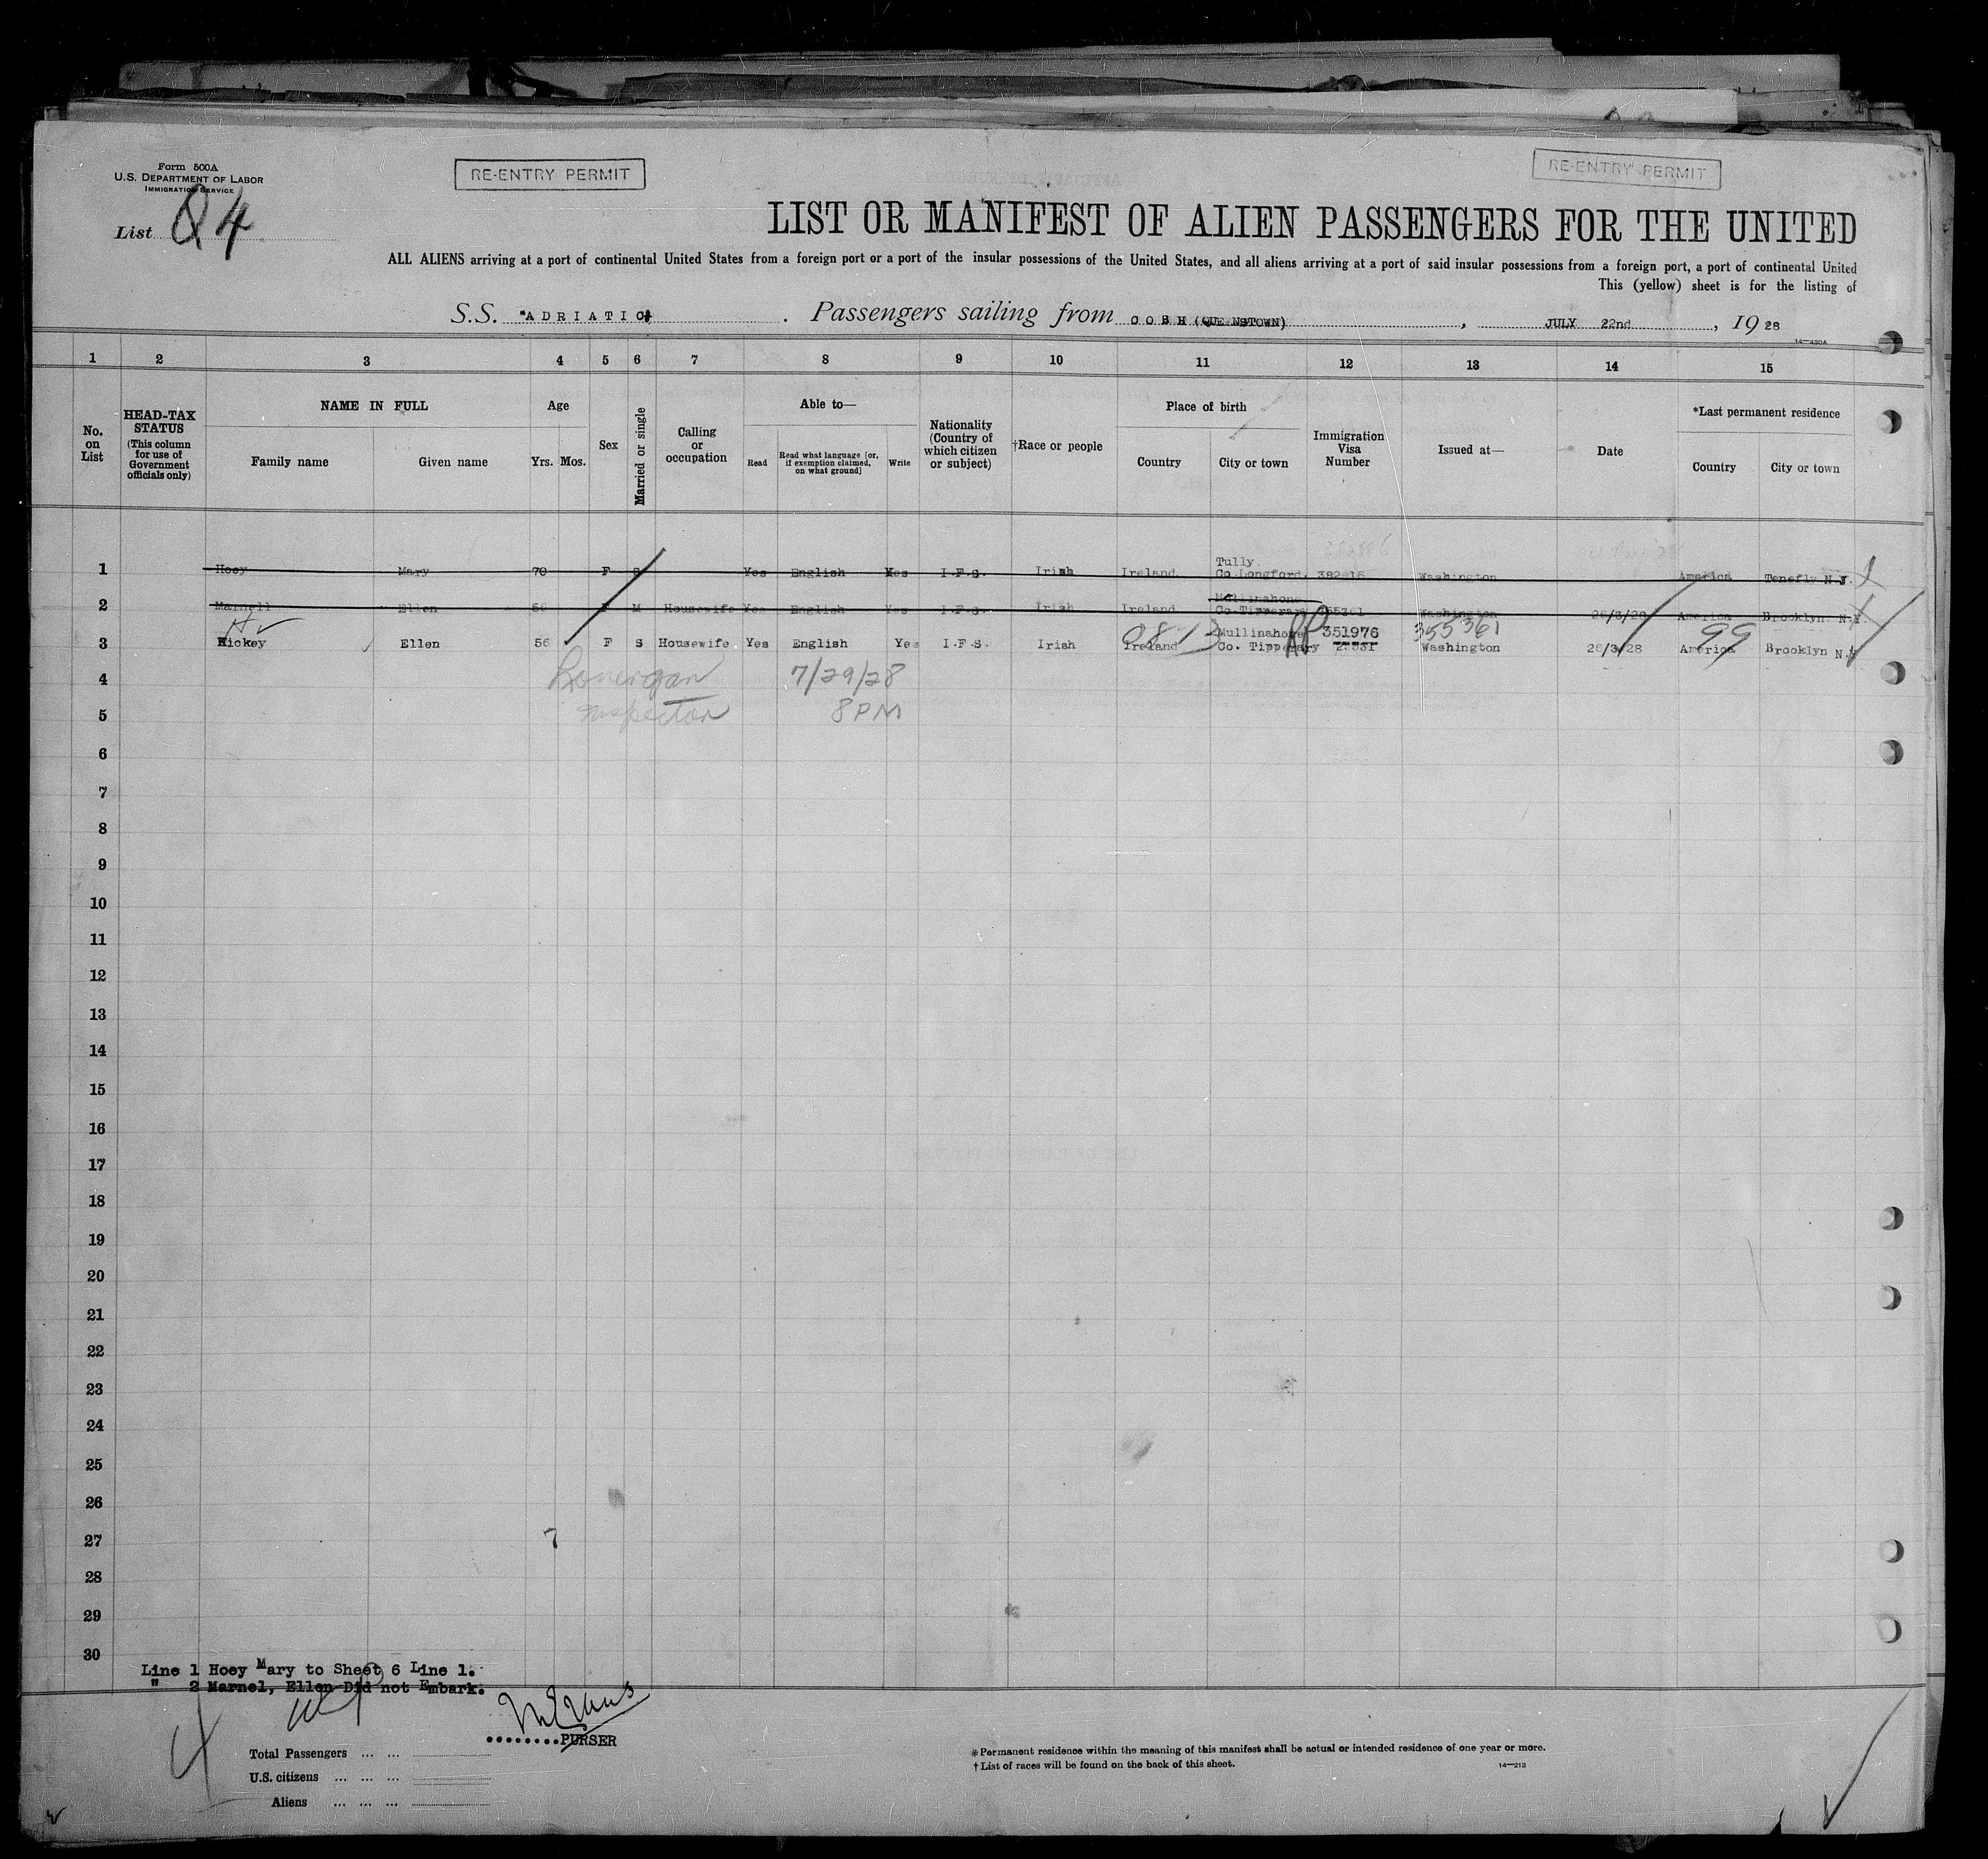 Form 500A
U.S. DEPARTMENT OF LABOR
IMMIGRATION SERVICE
RE-ENTRY PERMIT
RE-ENTRY PERMIT
List 84
LIST OR MANIFEST OF ALIEN PASSENGERS FOR THE UNITED
ALL ALIENS arriving at a port of continental United States from a foreign port or a port of the insular possessions of the United States, and all aliens arriving at a port of said insular possessions from a foreign port, a port of continental United
This (yellow) sheet is for the listing of
S.S. "ADRIATIC" . Passengers sailing from COBH (QUEENSTOWN) , JULY 22nd , 19 28
14—430A
1 2 3 4 5 6 7 8 9 10 11 12 13 14 15
No. on List
HEAD-TAX STATUS (This column for use of Government officials only)
NAME IN FULL
Family name Given name
Age
Yrs. Mos.
Sex
Married or single
Calling or occupation
Able to—
Read
Read what language [or, if exemption claimed, on what ground]
Write
Nationality (Country of which citizen or subject)
†Race or people
Place of birth
Country City or town
Immigration Visa Number
Issued at—
Date
*Last permanent residence
Country City or town
1 Hoey Mary 70 F S Yes English Yes I.F.S. Irish Ireland Tully. Co Longford. Washington America Tenefly N.J.
2 Marnell Ellen 56 F M Housewife Yes English Yes I.F.S. Irish Ireland Mullinahone Co.Tipperary 355361 Washington 26/3/28 America Brooklyn. N.Y
3 Hickey Ellen 56 F S Housewife Yes English Yes I.F.S. Irish Ireland Mullinahone Co. Tipperary 351976 355361 Washington 26/3/28 America Brooklyn N.Y
99
4 Lonergan 7/29/28
5 Inspector 8 PM
6
7
8
9
10
11
12
13
14
15
16
17
18
19
20
21
22
23
24
25
26
27 7
28
29
30
Line 1 Hoey Mary to Sheet 6 Line 1.
" 2 Marnel, Ellen Did not Embark.
........PURSER
Total Passengers ... ...
U.S. citizens ... ... ...
Aliens ... ... ...
*Permanent residence within the meaning of this manifest shall be actual or intended residence of one year or more.
†List of races will be found on the back of this sheet.
14—213